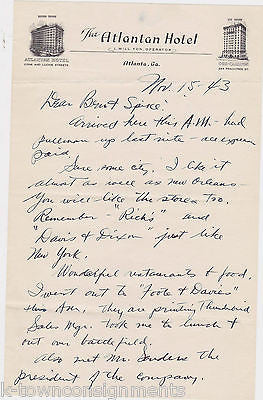 The Atlantan Hotel
J. WILL YON, OPERATOR
Atlanta, Ga.
ATLANTAN HOTEL
CONE AND LUCKIE STREETS
Nov. 15-43
Dear Benst Spice!
Arrived here this A.M. - had
pullman up last nite - all expenses
paid.
Sure some city. I like it
almost as well as New Orleans -
You will like the stores too.
Remember - "Rich's" and
"Davis & Dixon" just like
New York.
Wonderful restaurants & food.
I went out to "Foote & Davies"
this Aven, they are printing Thunderbird
Sales Mgr. took me to lunch &
out over battlefield.
Also met Mr. the
president of the company.
k-townconsignments